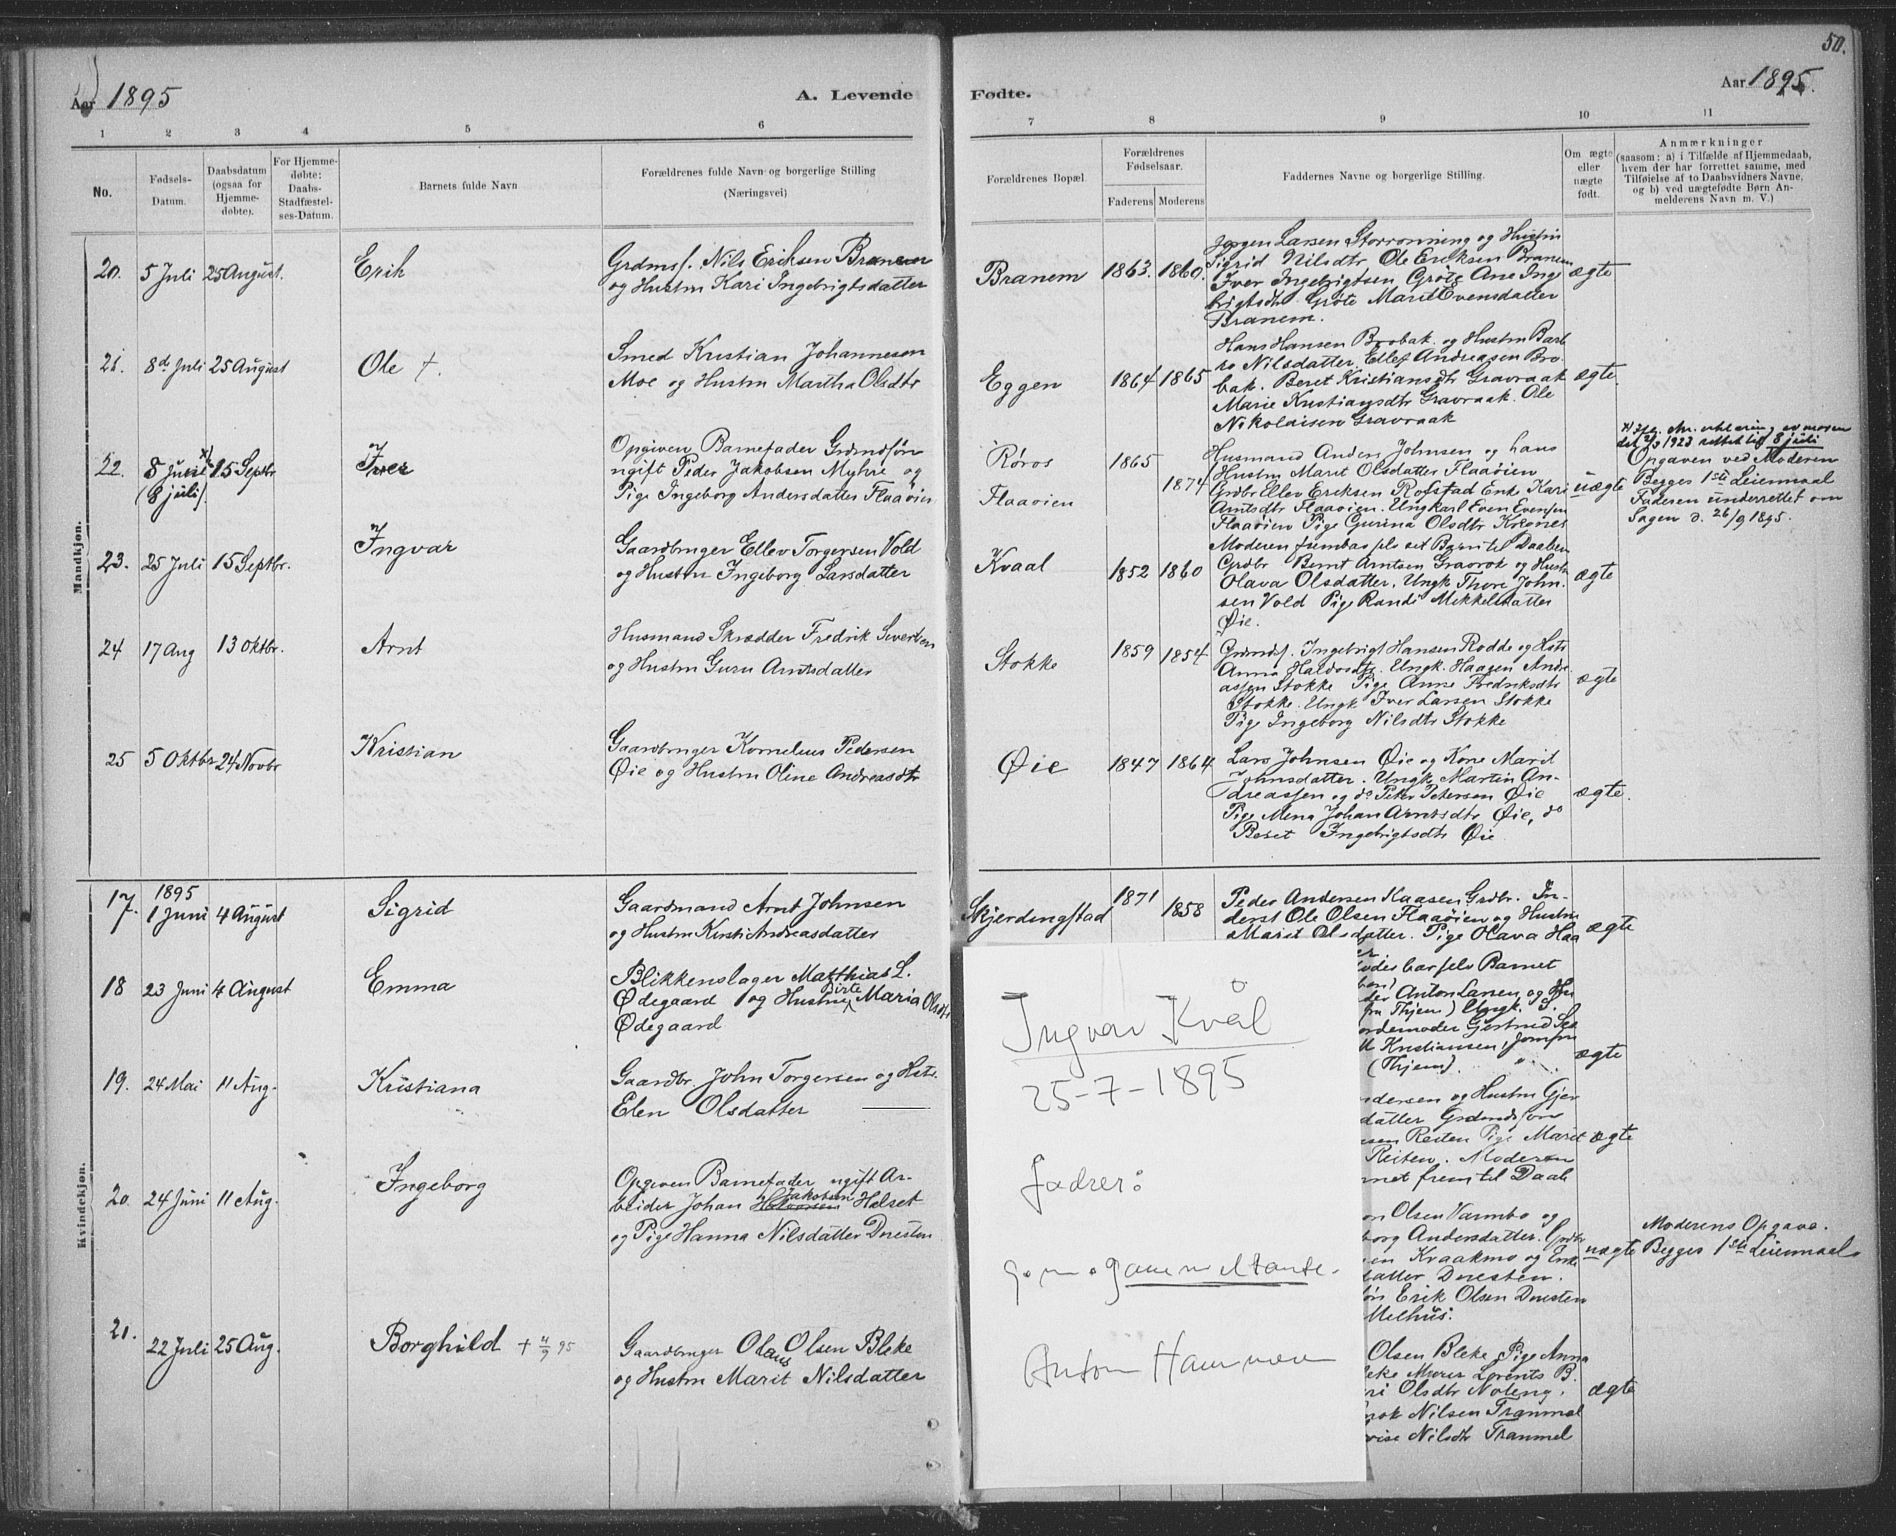 50.
Aar 1895
A. Levende
Fødte.
Aar 1895.
1 2 3 4 5 6
7 8 9 10 11
No.
Fødsels-
Datum.
Daabsdatum
(ogsaa for
Hjemme-
døbte).
For Hjemme-
døbte:
Daabs-
Stadfæstel-
ses-Datum.
Barnets fulde Navn
Forældrenes fulde Navn og borgerlige Stilling
(Næringsvei)
Forældrenes Bopæl.
Forældrenes
Fødselsaar.
Faderens Moderens
Faddernes Navne og borgerlige Stilling.
Om ægte
eller
uægte
født.
Anmærkninger
(saasom: a) i Tilfælde af Hjemmedaab,
hvem der har forrettet samme, med
Tilføielse af to Daabsvidners Navne,
og b) ved uægtefødte Børn An-
melderens Navn m. V.)
Mandkjøn.
20. 5 Juli 25 August. Erik
Grdms. Nils Eriksen Branem
og Hustru Kari Ingebrigtsdatter
Branem 1863. 1860.
Jørgen Larsen Storrønning og Hustru
Sigrid Nilsdtr Ole Eriksen Branem
Iver Ingebrigtsen Grøte Ane Inge
brigtsdtr Grøte Marit Evensdatter
Branem.
ægte
21. 8de Juli 25 August Ole +.
Smed Kristian Johannesen
Moe og Hustru Martha Olsdtr
Eggen 1864 1865
Hans Hansen Brobak og Hustru Barb
ro Nilsdatter, Ellef Andreasen Bro-
bak. Beret Kristiansdtr Gravraak
Marie Kristiansdtr Gravraak. Ole
Nikolaisen Gravraak
ægte.
22. 8 Juni x) 15 Septbr Iver
(8 juli).
Opgiven Barnefader Grdmdsøn
ugift Peder Jakobsen Myhre og
Pige Ingeborg Andersdatter Flaaøien
Røros 1865
Flaaøien 1874
Husmand Anders Johnsen og hans
Hustru Marit Olsdatter Flaaøien
Grdbr Ellev Eriksen Rofstad Enke Kari
Arntsdtr Flaaøien. Ungkarl Even Evensen
Flaaøien Pige Gurina Olsdtr Krones
Moderen frembar selv sit Barn til Daaben
uægte
x) Iflg. erklæring av moren
det 2/3 1923 rettet til 8 juli
Opgaven ved Moderen
Begges 1ste Leiermaal
Faderen underrettet om
Sagen d. 26/9 1895.
23. 25 Juli 15 Septbr. Ingvar
Gaardbruger Ellev Torgersen Vold
og Hustru Ingeborg Larsdatter
Kvaal 1852 1860
Grdbr Bernt Arntsen Gravrok og Hustru
Olava Olsdatter. Ungk Thore John-
sen Vold Pige Randi Mikkelsdatter
Øie.
ægte
24 17 Aug 13 Oktbr. Arnt
Husmand Skrædder Fredrik Sivertsen
og Hustru Guru Arntsdatter
Stokke 1859 1854
Grdmds. Ingebrigt Hansen Rodde og Hst
Anna Haldosdtr. Ungk. Haagen Andre
assen Stokke Pige Anne Fredriksdtr
Stokke. Ungk Iver Larsen Stokke
Pige Ingeborg Nilsdtr Stokke
ægte
25 5 Oktbr 24 Novbr Kristian
Gaardbruger Kornelius Pedersen
Øie og Hustru Oline Andreasdtr
Øie 1847 1864
Lars Johnsen Øie og Kone Marit
Johnsdatter. Ungk Martin An-
dreassen og do Peter Petersen Øie
Pige Mena Johan Arntsdtr Øie, do
Beret Ingebrigtsdtr Øie
ægte.
Kvindekjøn.
17. 1895 1 Juni 4 August Sigrid
Gaardmand Arnt Johnsen
og Hustru Kirsti Andreasdatter
Skjerdingstad 1871 1858
Peder Andersen Kaasen Grdbr. In-
derst Ole Olsen Flaaøien og Hustru
Marit Olsdatter. Pige Olava Haa
ægte
18 23 Juni 4 August Emma
Blikkenslager Matthias L.
Ødegaard og Hustru Birte Maria Olsdtr
Ødegaard
oder bar selv Barnet
der Anton Larsen og Hu
fra Thjem) Ungk. S.
ordemoder Gjertrud Sze
Kristiansen, Jomfru
(Thjem).
ægte
19. 24 Mai 11 Aug. Kristiana
Gaardbr. John Torgersen og Hst.
Elen Olsdatter
ndersen og Hustru Gjer
datter Grdmdsøn
sen Reiten Pige Marit
Reiten. Moderen
rnet frem til Daab
ægte
20. 24 Juni 11 Aug. Ingeborg
Opgiven Barnefader ugift Ar-
beider Johan Halvorsen Jakobsen Halset
og Pige Hanna Nilsdatter Duesten
Olsen Varmbo og
borg Andersdatter. Grdbr
en Kraakmo og Enke
datter Duesten.
Erik Olsen Duesten
Melhus.
uægte
Moderens Opgave.
Begges 1ste Leiermaal
21. 22 Juli 25 Aug. Borghild + 4/9 95
Gaardbruger Olaus Olsen Bleke
og Hustru Marit Nilsdatter
Olsen Bleke, Pige Anna
leke Murer Lorents B.
ri Olsdtr Noteng,
rok Nilsen Tranmel
Nilsdtr Tranmel
ægte
Ingvar Kvål
25-7-1895
fadrer:
gammeltante.
Anton Hammern